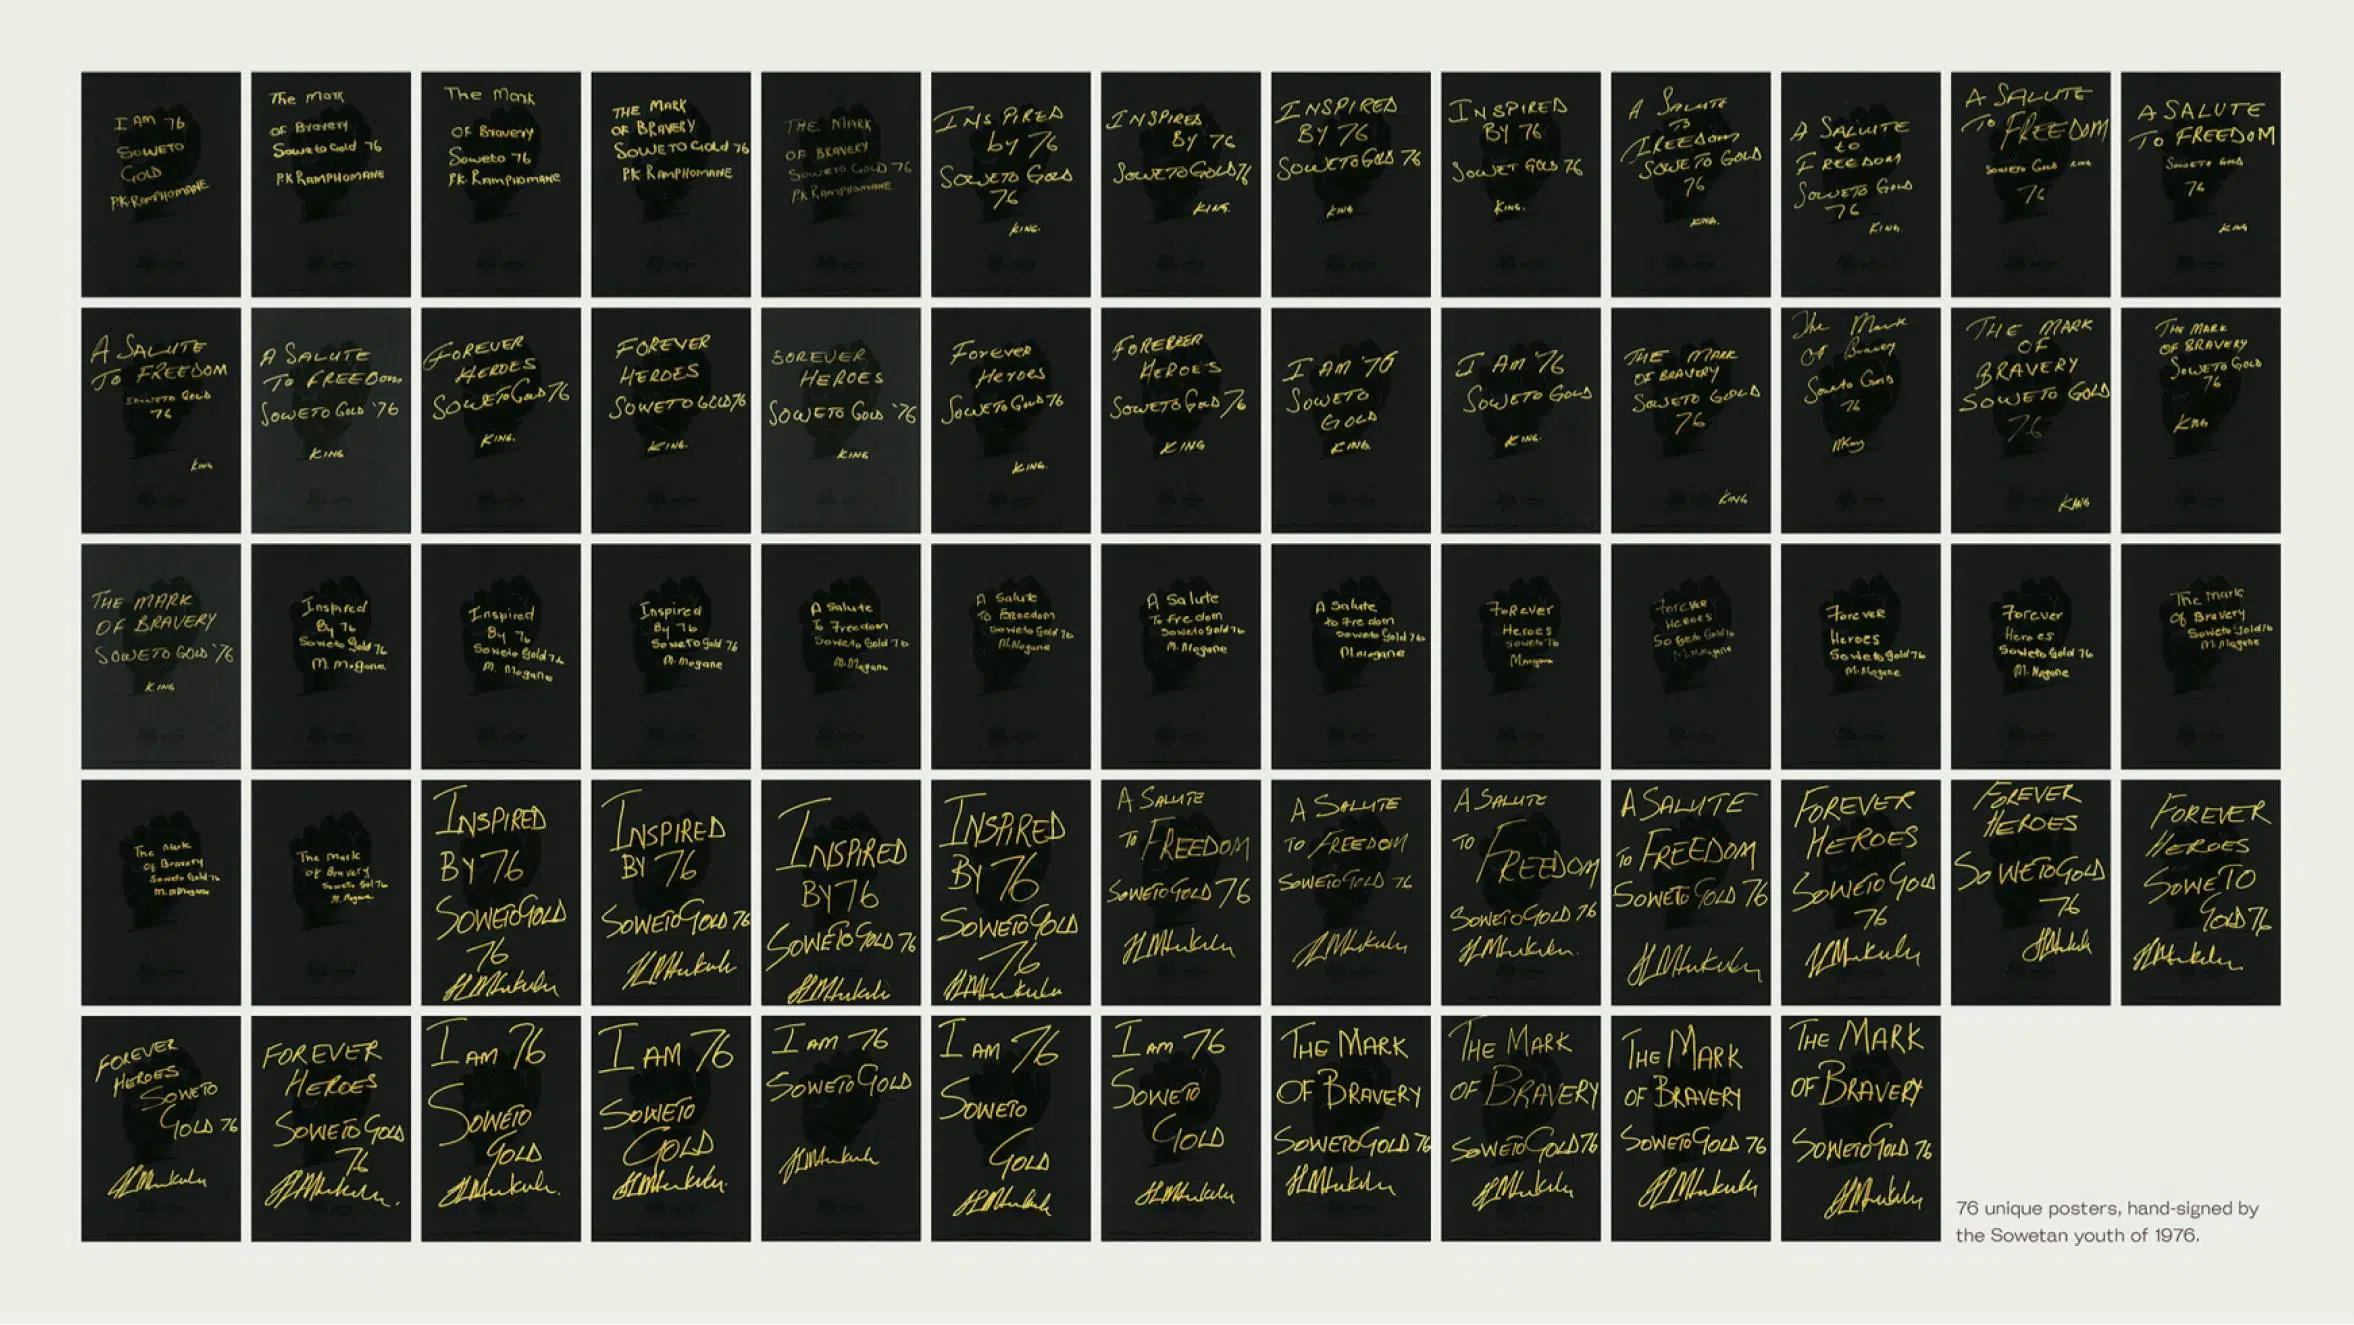 I AM 76
SOWETO
GOLD
P.K. RAMPHOMANE
The Mark
of Bravery
Soweto Gold 76
P.K RAMPHOMANE
The Mark
OF Bravery
Soweto 76
P.K. RAMPHOMANE
THE MARK
OF BRAVERY
SOWETO GOLD 76
P.K RAMPHOMANE
THE MARK
OF BRAVERY
SOWETO GOLD 76
P.K RAMPHOMANE
INSPIRED
by 76
SOWETO GOLD
76
KING.
INSPIRED
BY 76
SOWETO GOLD 76
KING.
INSPIRED
BY 76
SOWETO GOLD 76
KING
INSPIRED
BY 76
SOWET GOLD 76
KING.
A SALUTE
TO
FREEDOM
SOWETO GOLD
76
KING.
A SALUTE
to
FREEDOM
SOWETO GOLD
76
KING.
A SALUTE
TO FREEDOM
SOWETO GOLD KING
76
A SALUTE
TO FREEDOM
SOWETO GOLD
76
KING
A SALUTE
TO FREEDOM
SOWETO GOLD
76
KING
A SALUTE
TO FREEDOM
SOWETO GOLD '76
KING
FOREVER
HEROES
SOWETO GOLD 76
KING.
FOREVER
HEROES
SOWETO GOLD 76
KING.
FOREVER
HEROES
SOWETO GOLD '76
KING
Forever
Heroes
SOWETO GOLD 76
KING.
FOREVER
HEROES
SOWETO GOLD 76
KING
I AM '76
SOWETO
GOLD
KING.
I AM '76
SOWETO GOLD
KING.
THE MARK
OF BRAVERY
SOWETO GOLD
76
KING
The Mark
Of Bravery
Soweto Gold
76
THE MARK
OF
BRAVERY
SOWETO GOLD
76
KING
THE MARK
OF BRAVERY
SOWETO GOLD
76
KING
THE MARK
OF BRAVERY
SOWETO GOLD '76
KING
Inspired
By 76
Soweto Gold 76
M. Mogane
Inspired
By 76
Soweto Gold 76
M. Mogane
Inspired
By 76
Soweto Gold 76
M. Mogane
A Salute
To Freedom
Soweto Gold 76
M. Mogane
A Salute
To Freedom
Soweto Gold 76
M. Mogane
A Salute
To Freedom
Soweto Gold 76
M. Mogane
A Salute
to Freedom
Soweto Gold 76
M. Mogane
Forever
Heroes
Soweto '76
M. Mogane
Forever
Heroes
Soweto Gold 76
M. Mogane
Forever
Heroes
Soweto Gold 76
M. Mogane
Forever
Heroes
Soweto Gold 76
M. Mogane
The Mark
Of Bravery
Soweto Gold 76
M. Mogane
The Mark
Of Bravery
Soweto Gold 76
M. Mogane
The Mark
of Bravery
Soweto Gol 76
M. Mogane
INSPIRED
BY 76
SOWETO GOLD
76
INSPIRED
BY 76
SOWETO GOLD 76
INSPIRED
BY 76
SOWETO GOLD 76
INSPIRED
BY 76
SOWETO GOLD
76
A SALUTE
TO FREEDOM
SOWETO GOLD 76
A SALUTE
TO FREEDOM
SOWETO GOLD 76
A SALUTE
TO
FREEDOM
SOWETO GOLD 76
A SALUTE
TO FREEDOM
SOWETO GOLD 76
FOREVER
HEROES
SOWETO GOLD
76
FOREVER
HEROES
SOWETO GOLD
76
FOREVER
HEROES
SOWETO
GOLD 76
FOREVER
HEROES
SOWETO
GOLD 76
FOREVER
HEROES
SOWETO GOLD
76
I AM 76
SOWETO
GOLD
I AM 76
SOWETO
GOLD
I AM 76
SOWETO GOLD
I AM 76
SOWETO
GOLD
I AM 76
SOWETO
GOLD
THE MARK
OF BRAVERY
SOWETO GOLD 76
THE MARK
OF BRAVERY
SOWETO GOLD 76
THE MARK
OF BRAVERY
SOWETO GOLD 76
THE MARK
OF BRAVERY
SOWETO GOLD 76
76 unique posters, hand-signed by
the Sowetan youth of 1976.